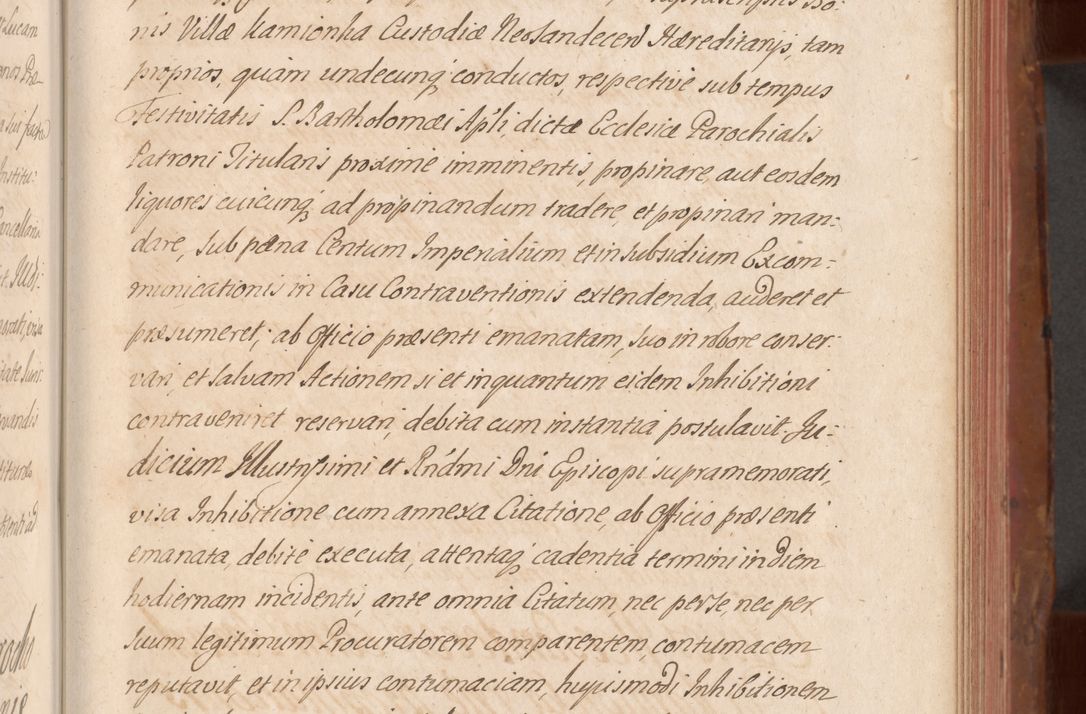 nis Villæ Kamionka Custodiæ Neosandecen Hæreditarijs, tam
proprios, quàm undecunq; conductos, respectivè sub tempus
Festivitatis S. Bartholomæi Ap̃li dictæ Ecclesiæ Parochialis
Patroni Titularis proximè imminentis, propinare, aut eosdem
liquores cuicunq; ad propinandum tradere, et propinari man:
dare, sub pæna Centum Imperialium et in subsidium Excom-
municationis in Casu Contraventionis extendenda, auderet et
præsumeret; ab Officio præsenti emanatam, suo in robore conser:
vari, et salvam Actionem si et inquantum eidem Inhibitioni
contraveniret reservari, debita cum instantia postulavit. Ju-
dicium Illustrissimi et Rńdmi Dni Episcopi supramemorati,
visa Inhibitione cum annexa Citatione, ab Officio præsenti
emanata, debitè executa, attentaq; cadentia termini in diem
hodiernam incidentis, ante omnia Citatum, nec per se, nec per
suum legitimum Procuratorem comparentem, contumacem
reputavit, et in ipsius contumaciam, hujusmodi Inhibitionem
Lucan